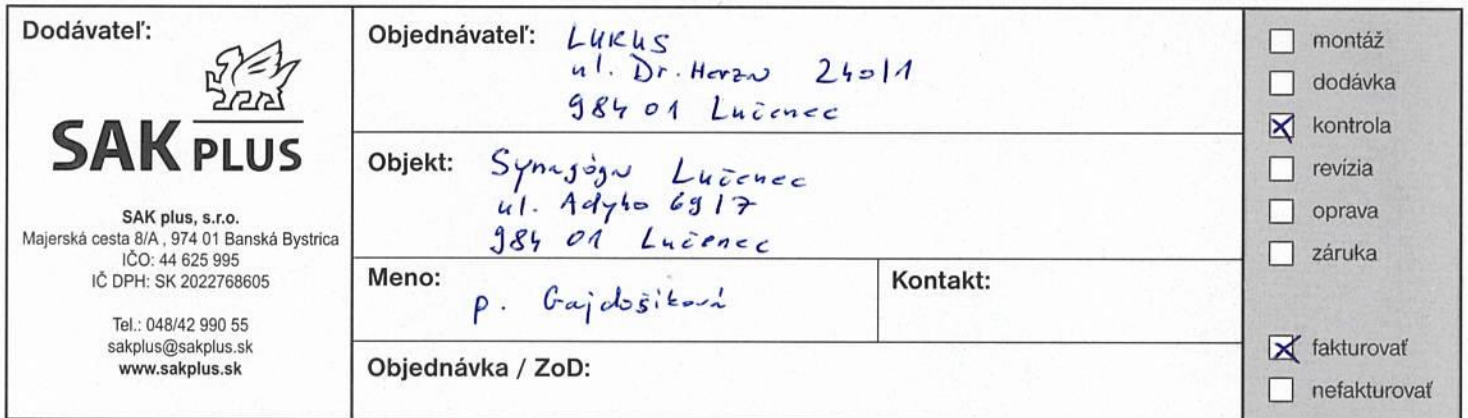 Dodávateľ:
SAK PLUS
SAK plus, s.r.o.
Majerská cesta 8/A , 974 01 Banská Bystrica
IČO: 44 625 995
IČ DPH: SK 2022768605
Tel.: 048/42 990 55
sakplus@sakplus.sk
www.sakplus.sk
Objednávateľ: LUKUS
ul. Dr. Herza 240/1
984 01 Lučenec
Objekt: Synagóga Lučenec
ul. Adyho 69/7
984 01 Lučenec
Meno: p. Gajdošíková
Kontakt:
Objednávka / ZoD:
montáž
dodávka
kontrola
revízia
oprava
záruka
fakturovať
nefakturovať